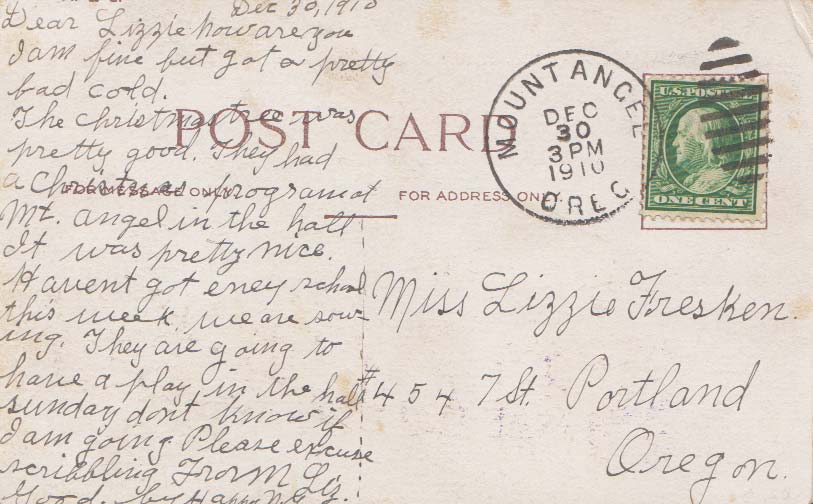 Dec 30, 1910
Dear Lizzie how are you
I am fine but got a pretty
bad cold.
The christmas tree was
pretty good. They had
a Christmas program at
Mt. angel in the hall
It was pretty nice.
Havent got eney school
this week. we are sow-
ing. They are going to
have a play in the hall
sunday dont know if
I am going. Please excuse
scribbling From
Good. by Happy N. Y.
POST CARD
FOR MESSAGE ONLY.
FOR ADDRESS ONLY.
MOUNT ANGEL
DEC
30
3 PM
1910
OREG.
U.S. POSTAGE
ONE CENT
Miss Lizzie Fresken.
#454 7 St. Portland
Oregon.